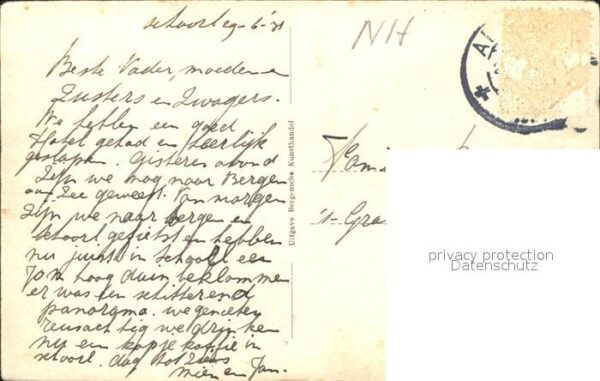 schoorl 29-6-'31
NH
Beste Vader, moeder en
Zusters en Zwagers.
We hebben een goed
Hotel gehad en heerlijk
geslapen. Gisteren avond
zijn we nog naar Bergen
aan Zee geweest. Van morgen
zijn we naar bergen en
schoorl gefietst en hebben
nu juist in schoorl een
50m hoog duin beklommen
er was een schitterend
panorama. we genieten
reusachtig we drinken
nu een kopje koffie in
schoorl. dag tot ziens
Mien en Jan.
Uitgave Bergensche Kunsthandel
Fam
's-Gra
privacy protection
Datenschutz